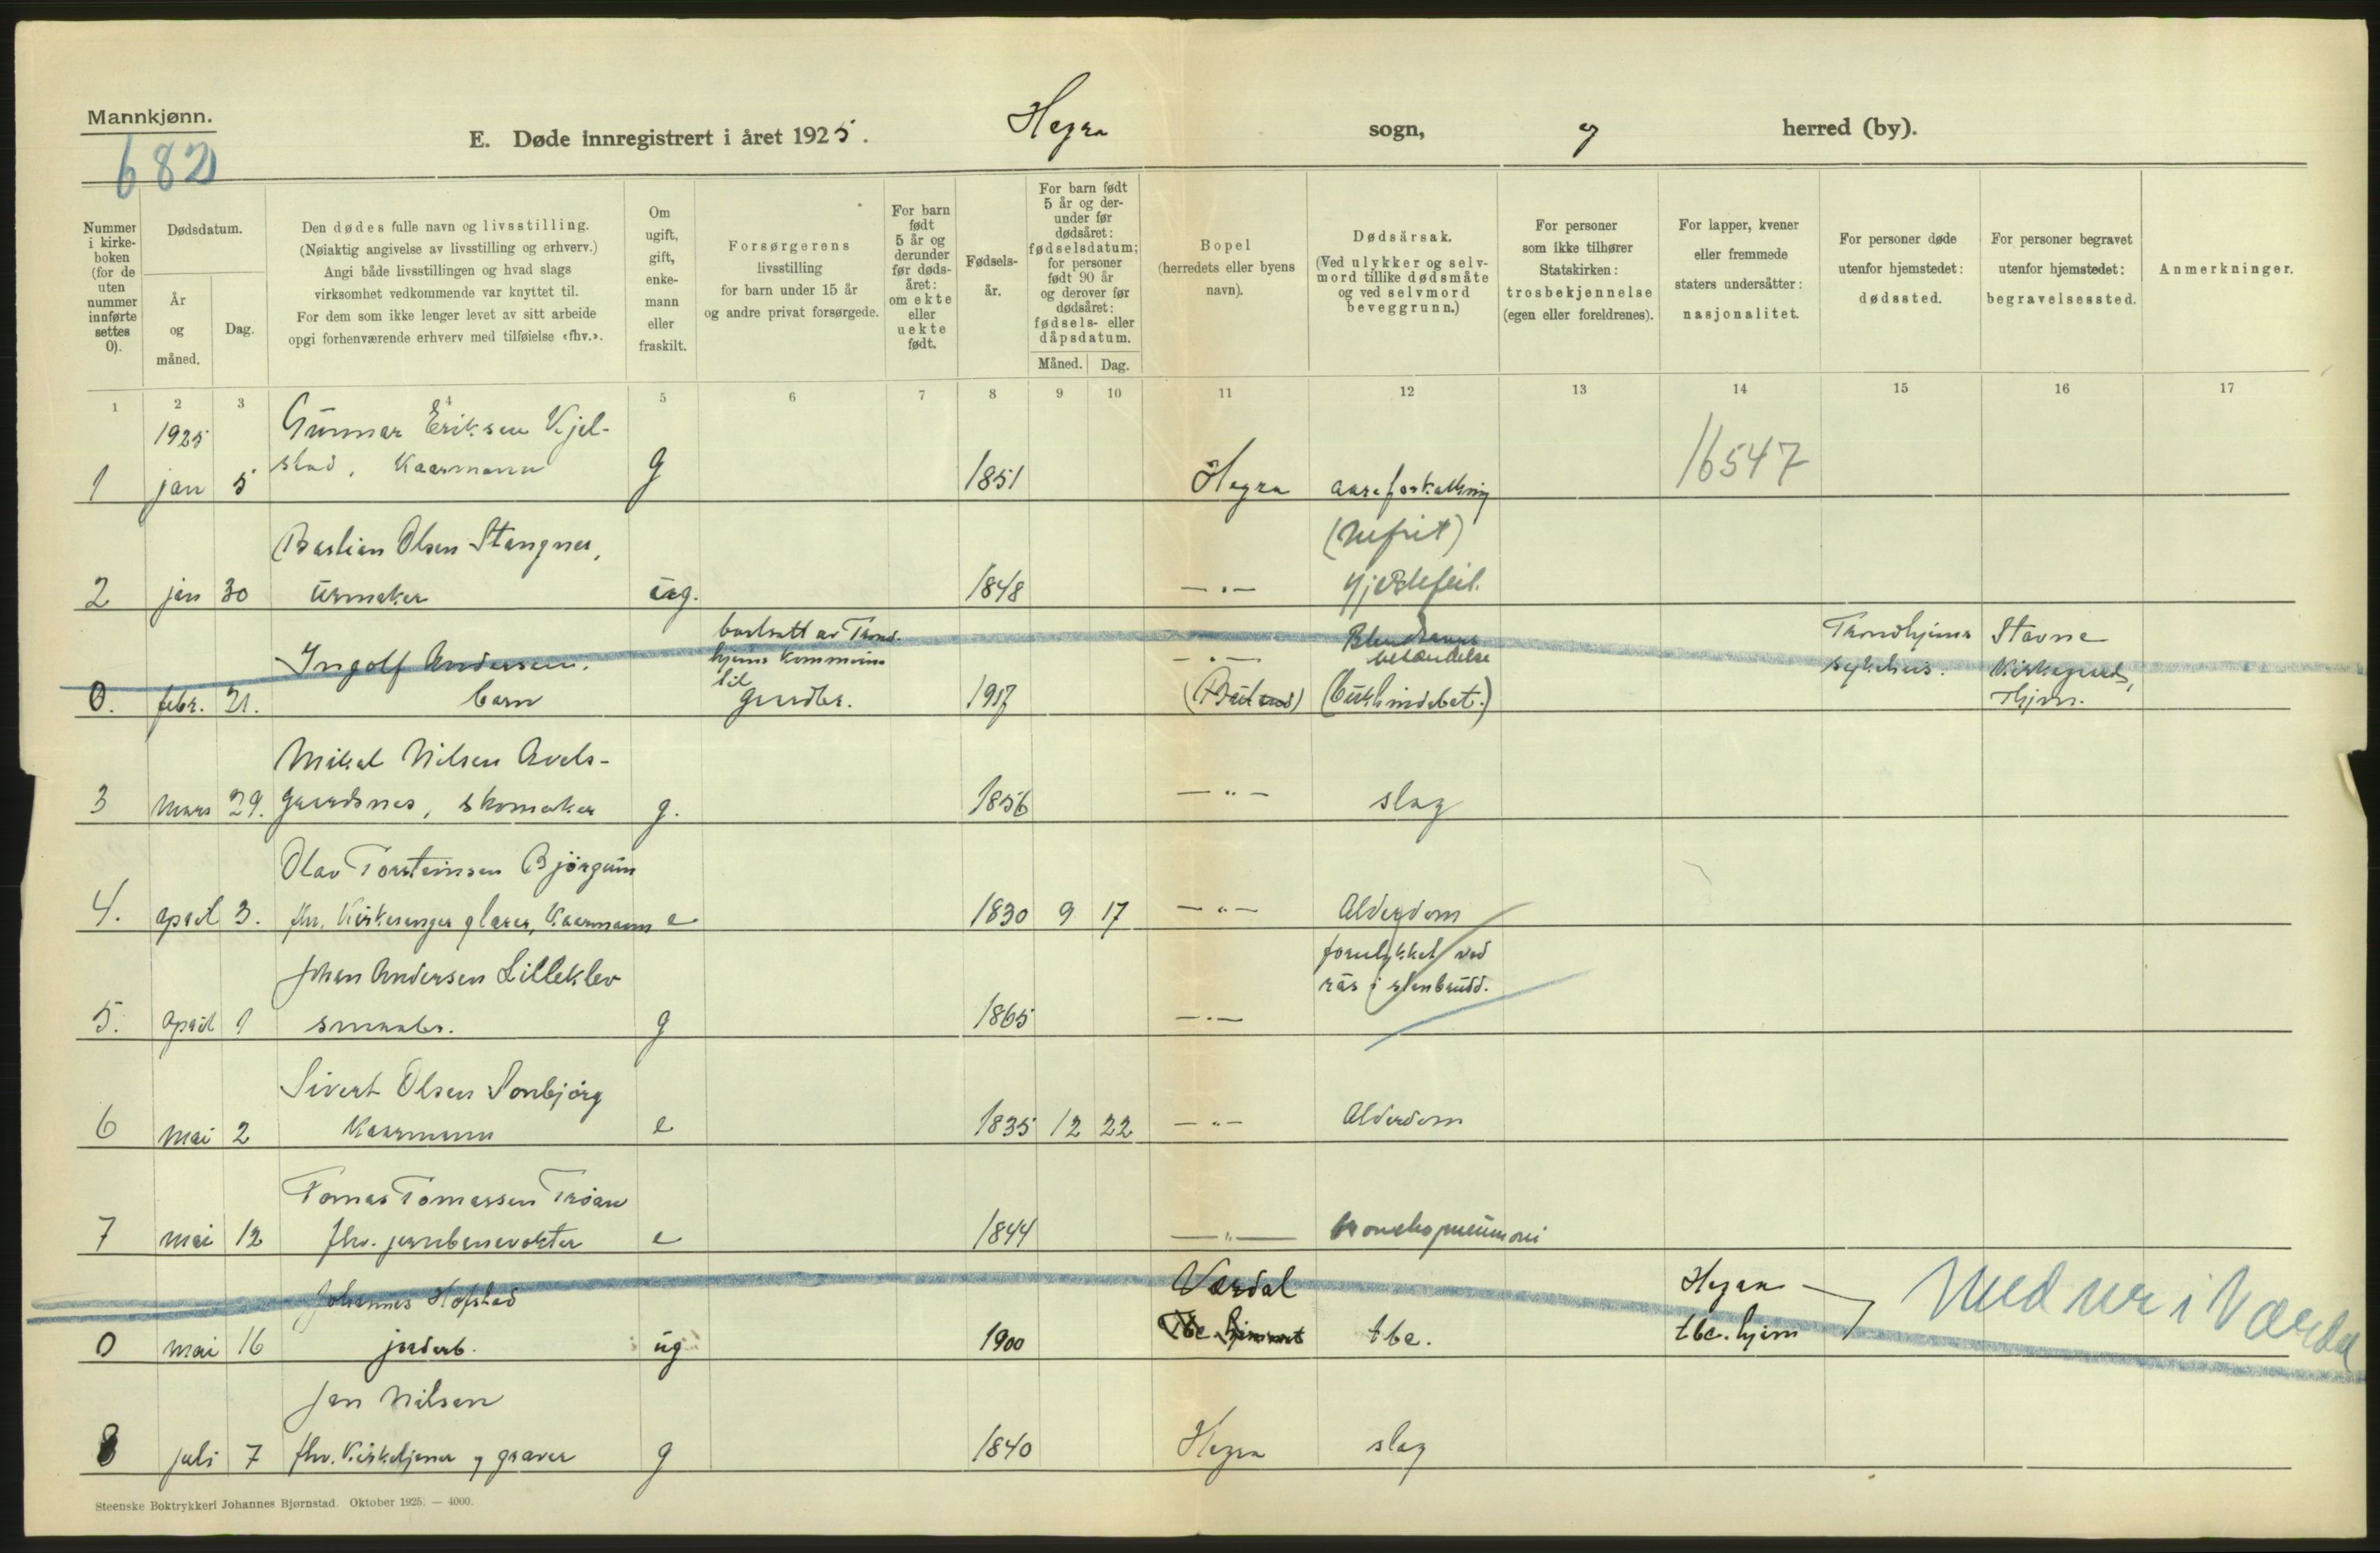 Mannkjønn.
682
E. Døde innregistrert i året 1925. Hegra sogn, og herred (by).
Nummer i kirkeboken (for de uten nummer innførte settes 0).
Dødsdatum.
År og måned.
Dag.
Den dødes fulle navn og livsstilling.
(Nøiaktig angivelse av livsstilling og erhverv.)
Angi både livsstillingen og hvad slags
virksomhet vedkommende var knyttet til.
For dem som ikke lenger levet av sitt arbeide
opgi forhenværende erhverv med tilføielse «fhv.».
Om ugift, gift, enkemann eller fraskilt.
Forsørgerens
livsstilling
for barn under 15 år
og andre privat forsørgede.
For barn født 5 år og derunder før dødsåret: om ekte eller uekte født.
Fødselsår.
For barn født 5 år og derunder før dødsåret: fødselsdatum; for personer født 90 år og derover før dødsåret: fødsels- eller dåpsdatum.
Måned. Dag.
Bopel
(herredets eller byens
navn).
Dødsårsak.
(Ved ulykker og selvmord tillike dødsmåte
og ved selvmord
beveggrunn.)
For personer
som ikke tilhører
Statskirken:
trosbekjennelse
(egen eller foreldrenes).
For lapper, kvener
eller fremmede
staters undersåtter:
nasjonalitet.
For personer døde
utenfor hjemstedet:
dødssted.
For personer begravet
utenfor hjemstedet:
begravelsessted.
Anmerkninger.
1 2 3 4 5 6 7 8 9 10 11 12 13 14 15 16 17
1925 Gunnar Eriksen Kjel-
1 jan 5 stad, Kaarmann g 1851 Hegra aareforkalkning 16547
Bastian Olsen Stangnes, (Nefrit)
2 jan 30 urmaker ug. 1848 — " — Hjertefeil.
bortsatt av Trond-
Ingolf Andersen. hjems kommune — " — behandelse Trondhjems Stavne
sykehus. Kirkegaard,
0. febr. 21. barn til gardbr. 1917 (bukhindebet.) Thjem.
Mikal Nilsen Avels-
3 mars 29. gaardsnes, skomaker g. 1856 — " — slag
Olav Torsteinsen Bjørgum
4. april 3. fhv. Kirkesanger glarer, Kaarmann e 1830 9 17 — " — Alderdom
Johan Andersen Lilleklev forulykket ved
ras i stenbrudd.
5. april 1 smaabr. g 1865 — " —
Sivert Olsen Sonbjørg
6 mai 2 Kaarmann e 1835 12 22 — " — Alderdom
Tomas Tomassen Trøan
7 mai 12 fhv. jernbanevokter e 1844 — " — bronchopneumoni
Johannes Hofstad Værdal Hegra
0 mai 16 jordarb. ug 1900 tbc. hjemmet tbc. tbc. hjem Med nr i Værdal
Jon Nilsen
8 juli 7 fhv. Kirketjener og graver g 1840 Hegra slag
Steenske Boktrykkeri Johannes Bjørnstad. Oktober 1925. — 4000.